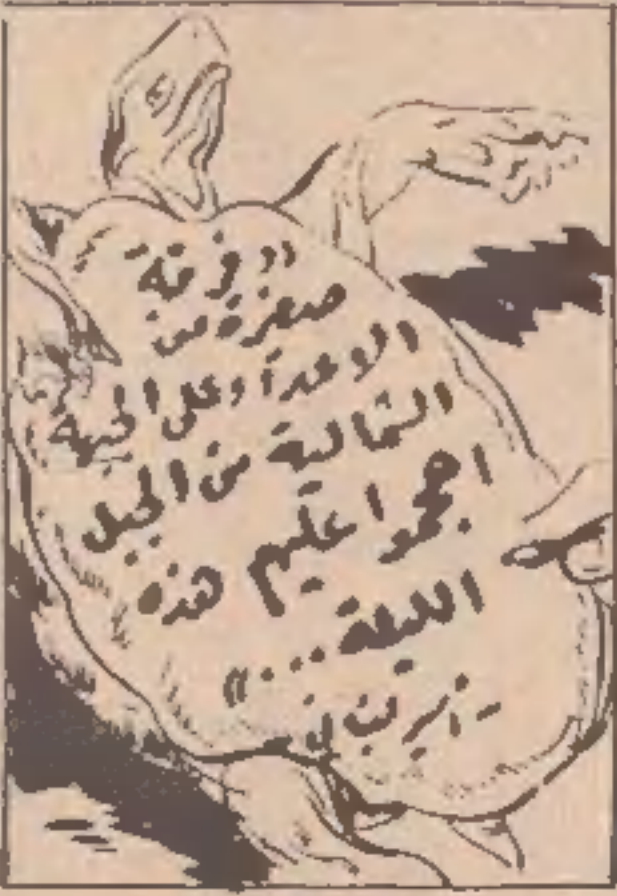 "فرقة
صغيرة من
الاعدأ على الجبهة
الشمالية من الجبل
اهجموا عليهم هذه
الليلة ..."